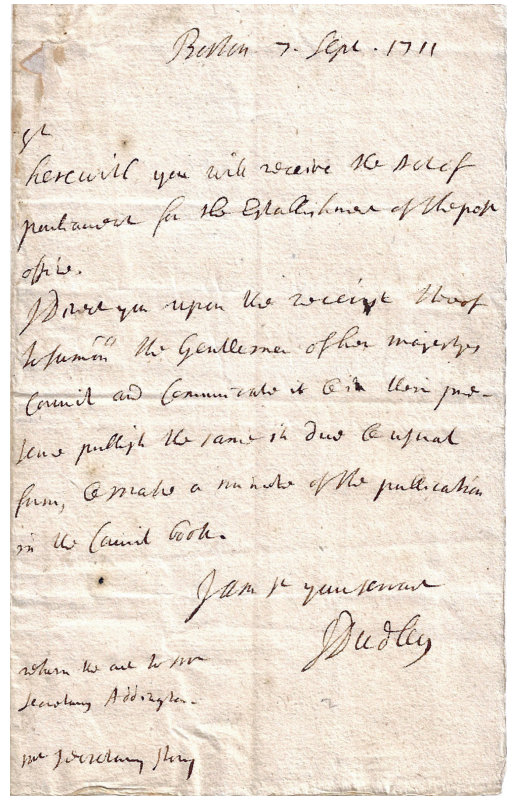 Boston 7. Sept. 1711
Sr
herewith you will receive the Act of
parliament for the Establishment of the post
office.
I Direct you upon the receipt thereof
to summon the Gentlemen of her majestys
Council and Communicate it & in their pre-
sence publish the same in due & usual
form, & make a minute of the publication
in the Council book.
I am Sr your servant
J Dudley
return the act to mr
Secretary Addington.
mr Secretary Story